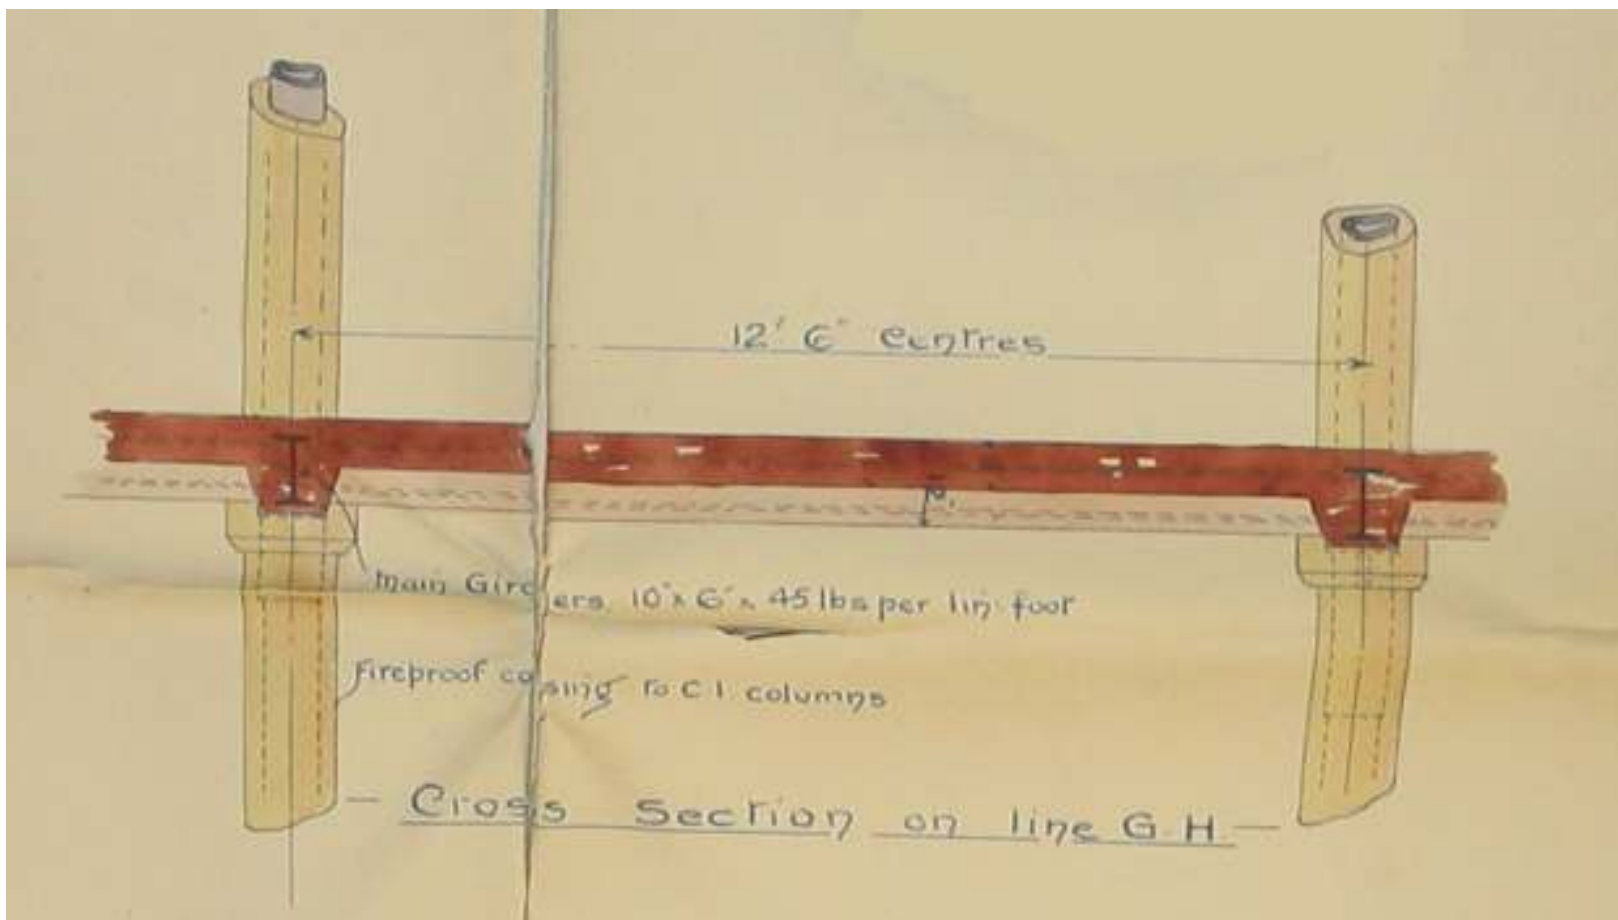 12' 6" Centres
Main Girders 10" x 6" x 45 lbs per lin. foot
Fireproof casing to C I columns
Cross Section on line G H